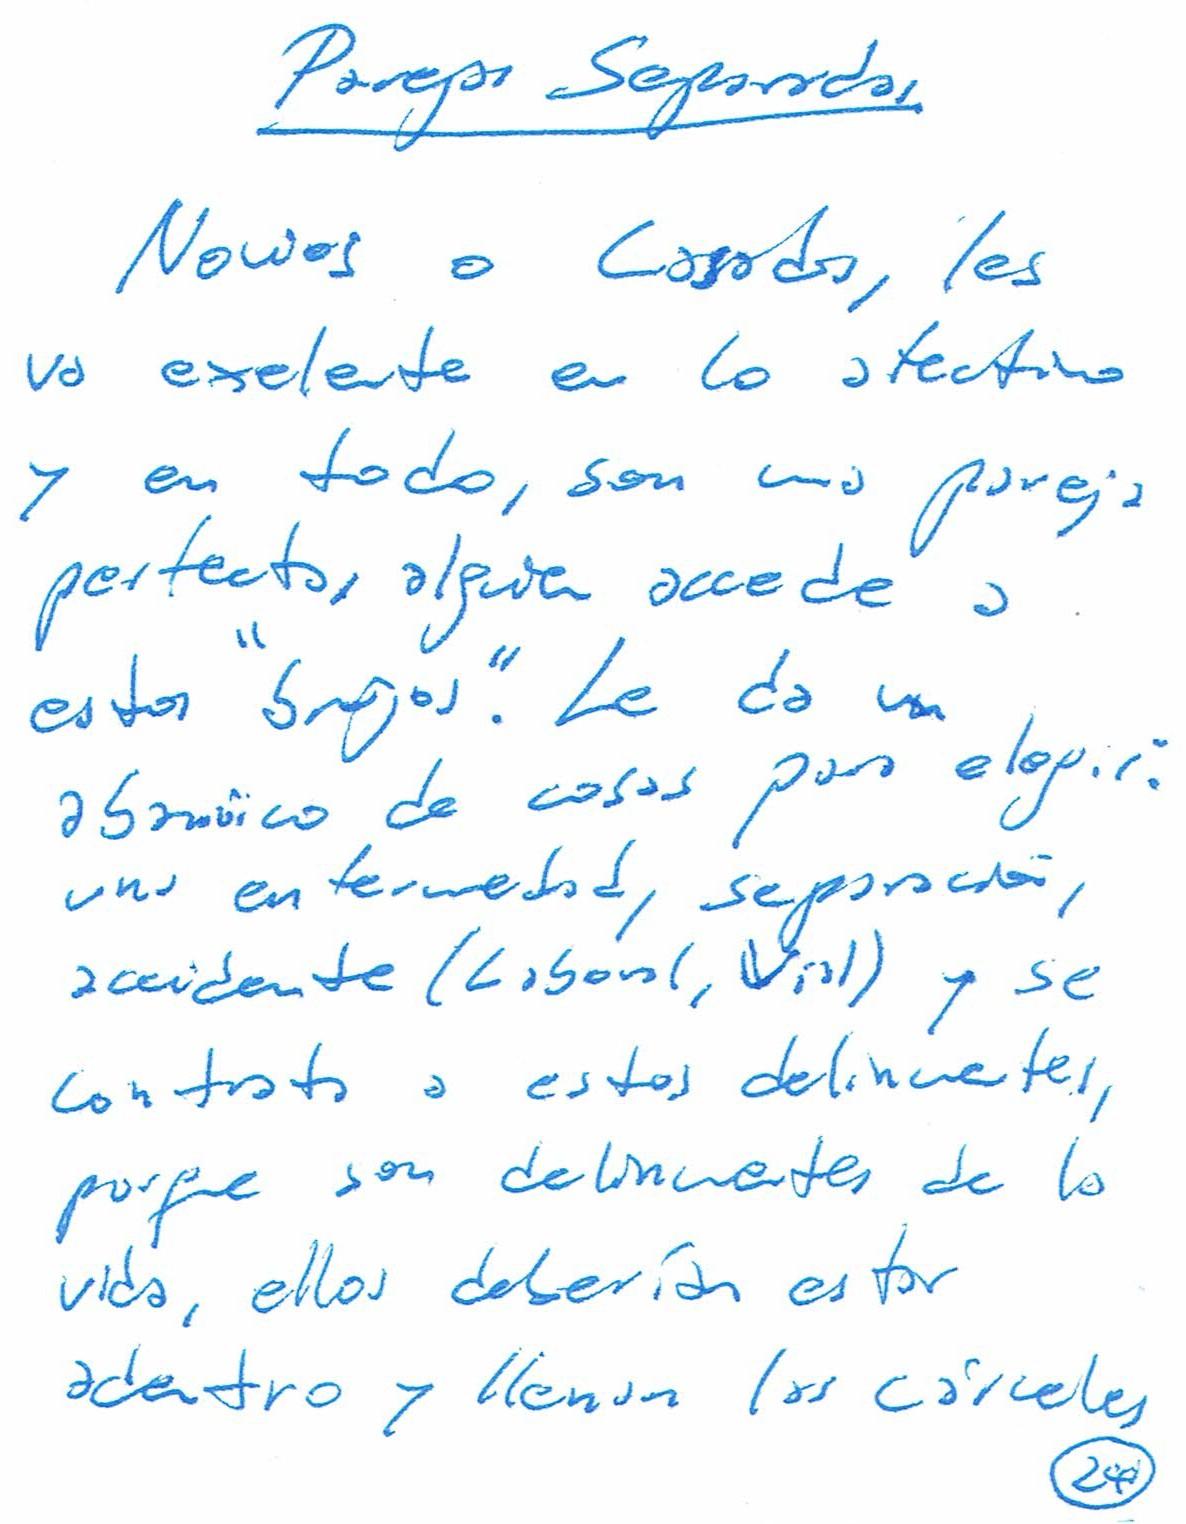 Parejas Separadas
Novios o Casados, les
va exelente en lo afectivo
y en todo, son una pareja
perfecta, alguien accede a
estos "brujos". Le da un
abanico de cosas para elegir:
una enfermedad, separación,
accidente (Laboral, Vial) y se
contrata a estos delincuentes,
porque son delincuentes de la
vida, ellos deberían estar
adentro y llenan las cárceles